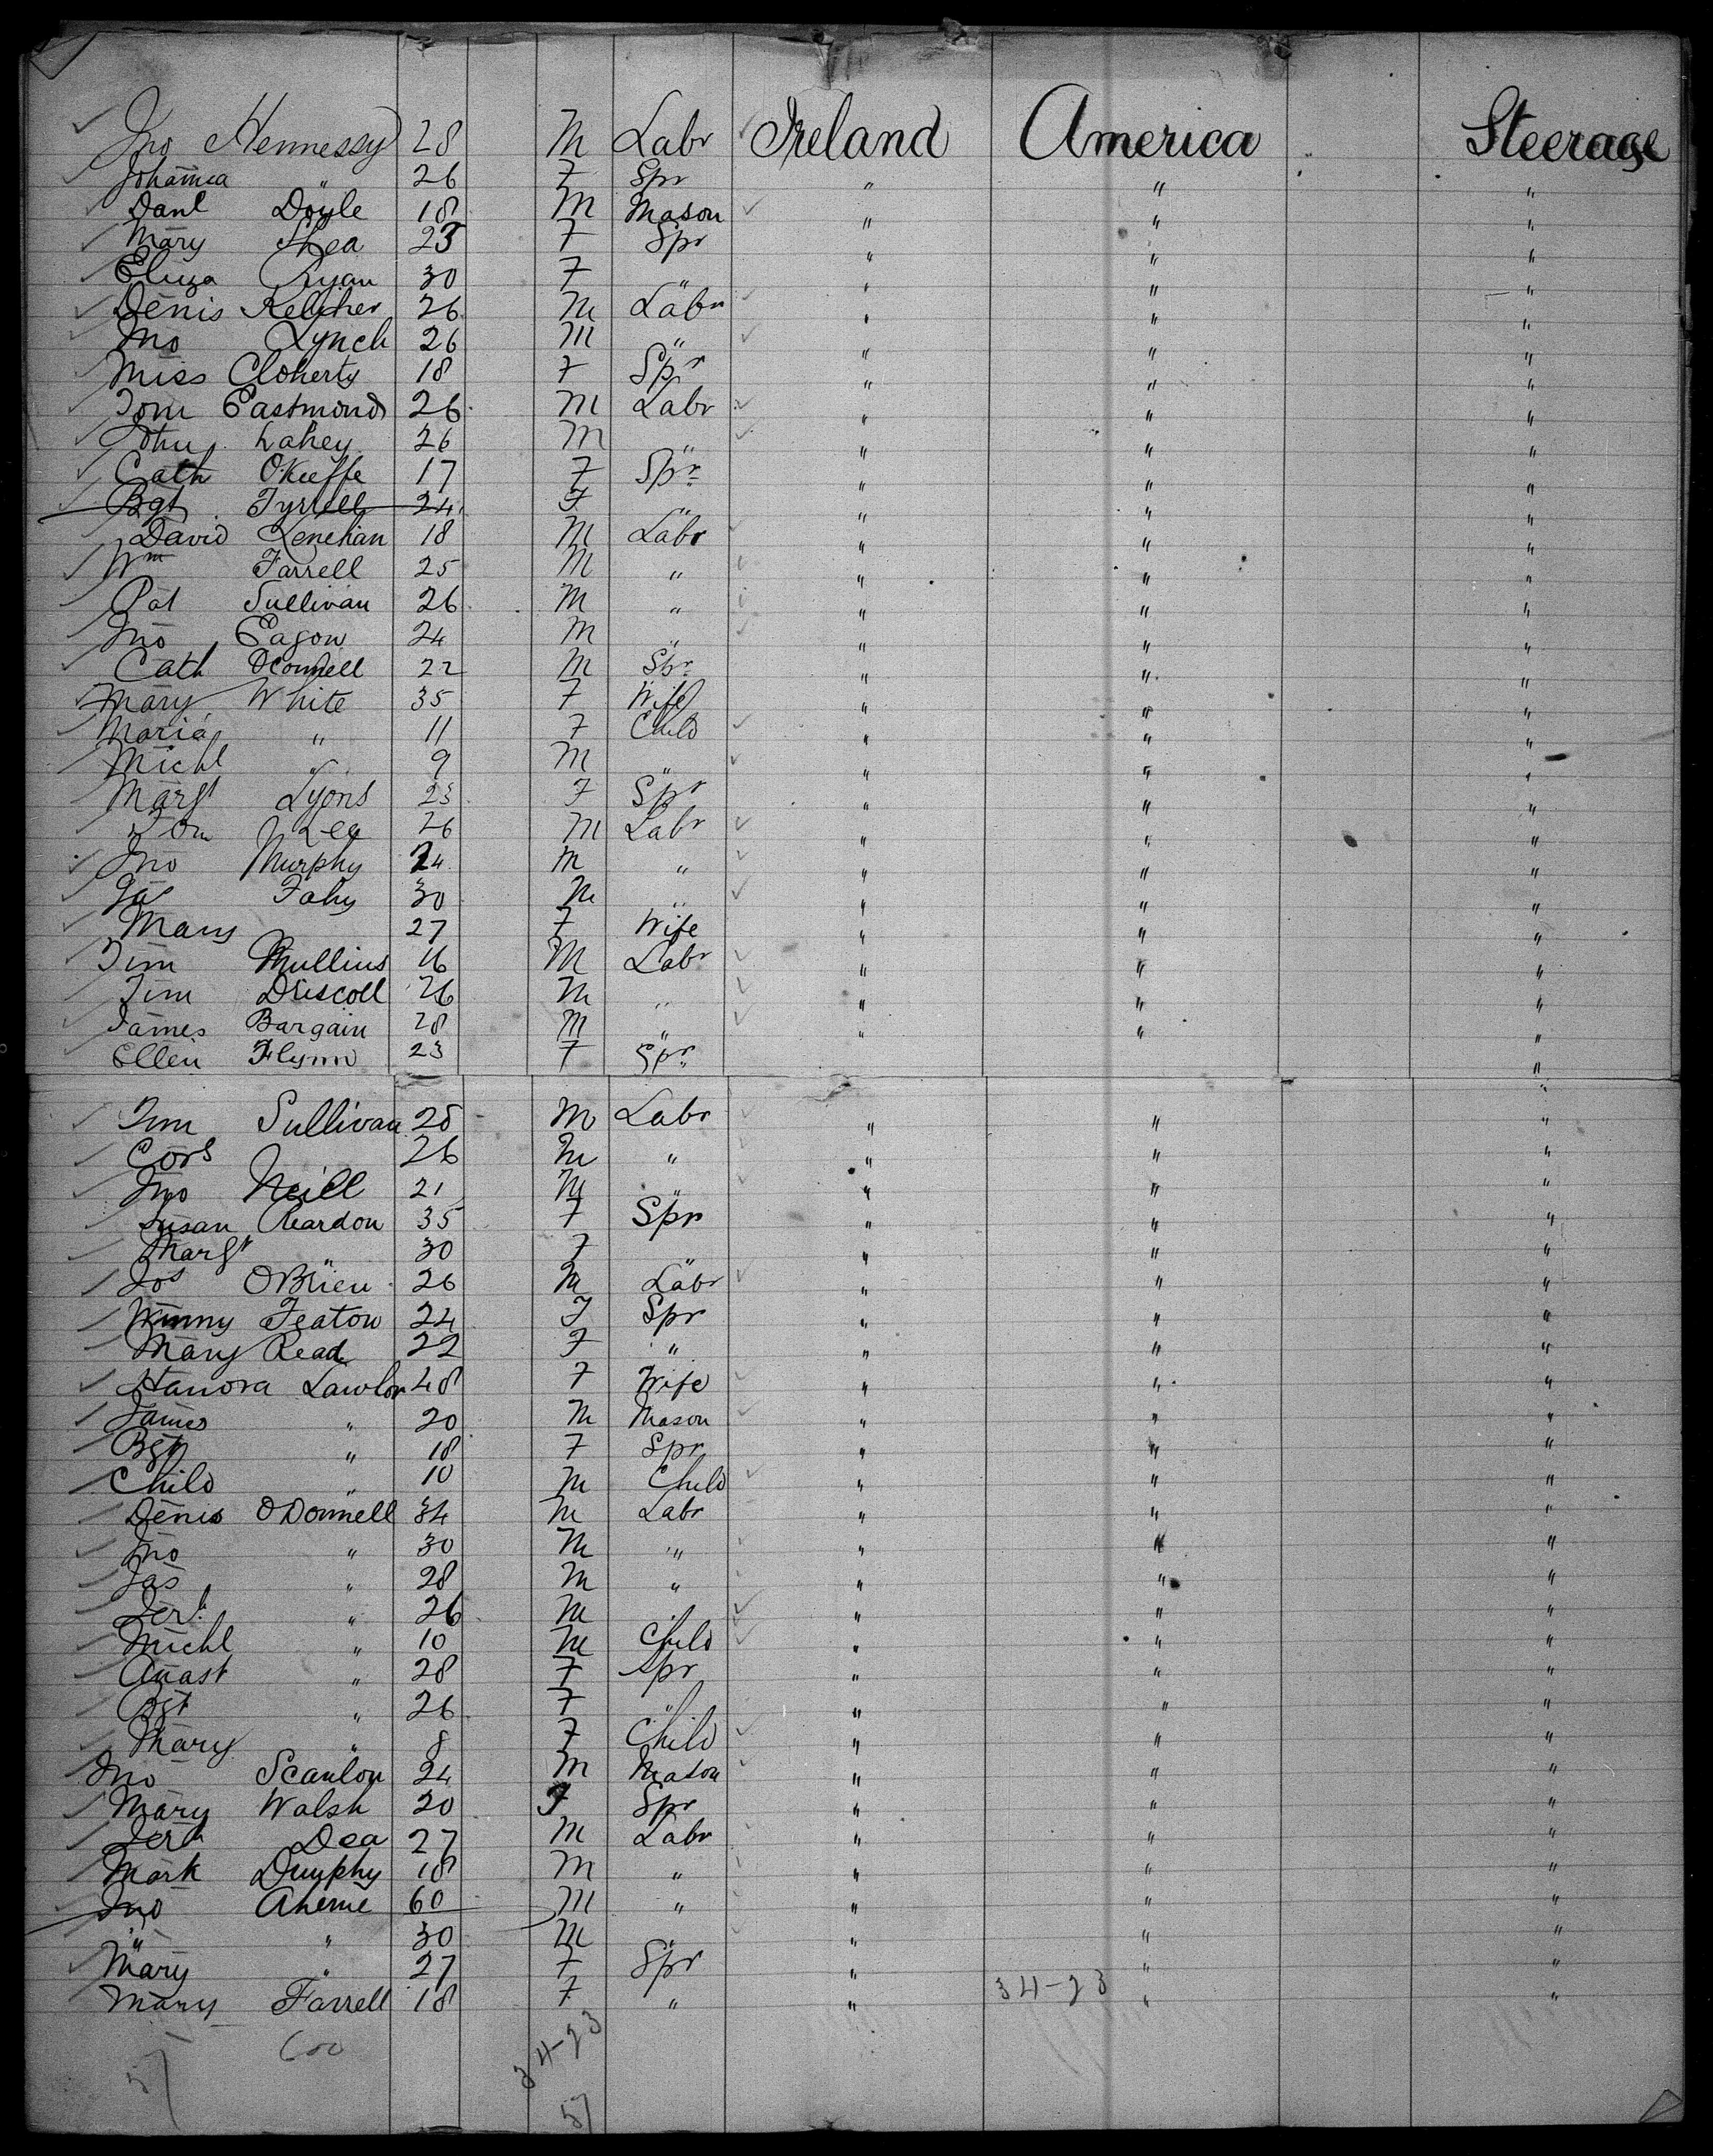 Jno Hennessy 28 M Labr Ireland America Steerage
Johanna " 26 F Spr " " "
Danl Doyle 18 M Mason " " "
Mary Shea 23 F Spr " " "
Eliza Ryan 30 F " " " "
Denis Kelleher 26 M Labr " " "
Jno Lynch 26 M " " " "
Miss Cloherty 18 F Spr " " "
Tom Eastmond 26 M Labr " " "
John Lahey 26 M " " " "
Cath OKeeffe 17 F Spr " " "
Bgt Tyrrell 24 F " " " "
David Lenehan 18 M Labr " " "
Wm Farrell 25 M " " " "
Pat Sullivan 26 M " " " "
Jno Eagon 24 M " " " "
Cath OConnell 22 M Spr " " "
Mary White 35 F Wife " " "
Maria " 11 F Child " " "
Michl " 9 M " " " "
Margt Lyons 23 F Spr " " "
Tom Lea 26 M Labr " " "
Jno Murphy 24 M " " " "
Jas Fahy 30 M " " " "
Mary 27 F Wife " " "
Tim Mullins 16 M Labr " " "
Tim Driscoll 26 M " " " "
James Bargain 28 M " " " "
Ellen Flynn 23 F Spr "
Tim Sullivan 28 M Labr " " "
Cors 26 M " " " "
Jno Neill 21 M " " " "
Susan Reardon 35 F Spr " " "
Margt " 30 F " " " "
Jos OBrien 26 M Labr " " "
Winny Featon 24 F Spr " " "
Mary Read 22 F " " " "
Hanora Lawlor 48 F Wife " " "
James " 20 M Mason " " "
Bgt " 18 F Spr " " "
Child " 10 M Child " " "
Denis ODonnell 34 M Labr " " "
Jno " 30 M " " " "
Jas " 28 M " " " "
Jerh " 26 M " " " "
Michl " 10 M Child " " "
Anast " 28 F Spr " " "
Bgt " 26 F " " " "
Mary " 8 F Child " " "
Jno Scanlon 24 M Mason " " "
Mary Walsh 20 F Spr " " "
Jerh Dea 27 M Labr " " "
Mark Dunphy 18 M " " " "
Jno Aherne 60 M " " " "
" " 30 M " " " "
Mary " 27 F Spr " " "
Mary Farrell 18 F " " 34-23 " "
57 34-23
57